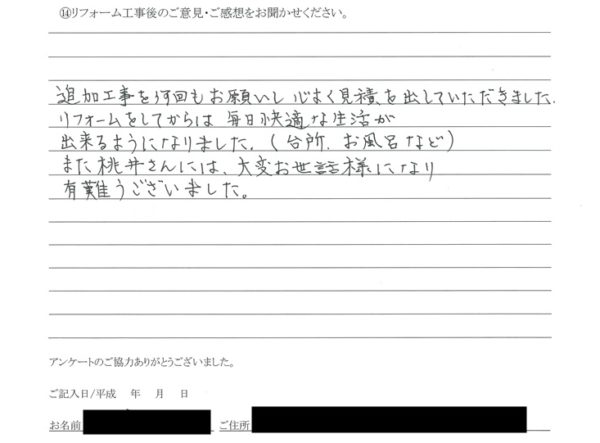 ⑭リフォーム工事後のご意見・ご感想をお聞かせください。
追加工事を何回もお願いし 心よく見積を出していただきました.
リフォームをしてからは 毎日快適な生活が
出来るようになりました.(台所.お風呂など)
また桃井さんには、大変お世話様になり
有難うございました。
アンケートのご協力ありがとうございました。
ご記入日/平成 年 月 日
お名前 ご住所